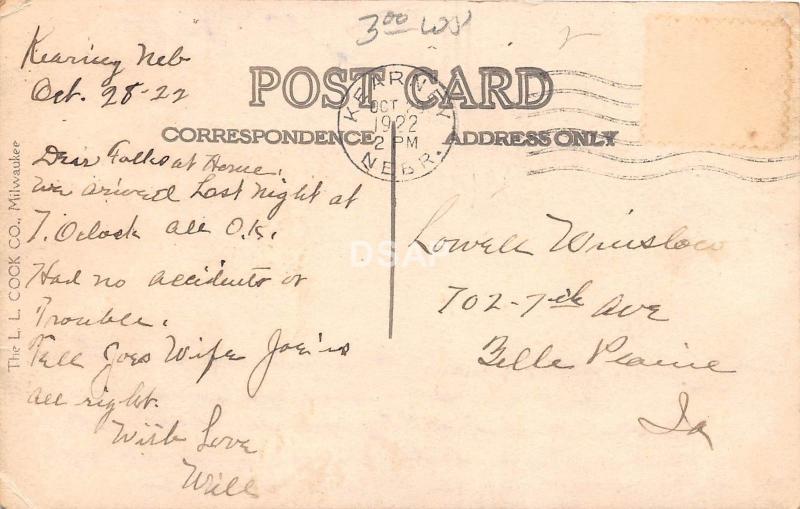 3.00
Kearney Neb
Oct. 28-22
POST CARD
KEARNEY
OCT
1922
2 PM
NEBR.
CORRESPONDENCE
ADDRESS ONLY
Dear Folks at Home.
We arived Last Night at
7. Oclock all O.K.
Had no accidents or
Trouble.
Tell Joes Wife Joe is
all right.
With Love
Will
Lowell Winslow
702-7th Ave
Belle Plaine
Ia
The L. L. COOK CO., Milwaukee
DSAP